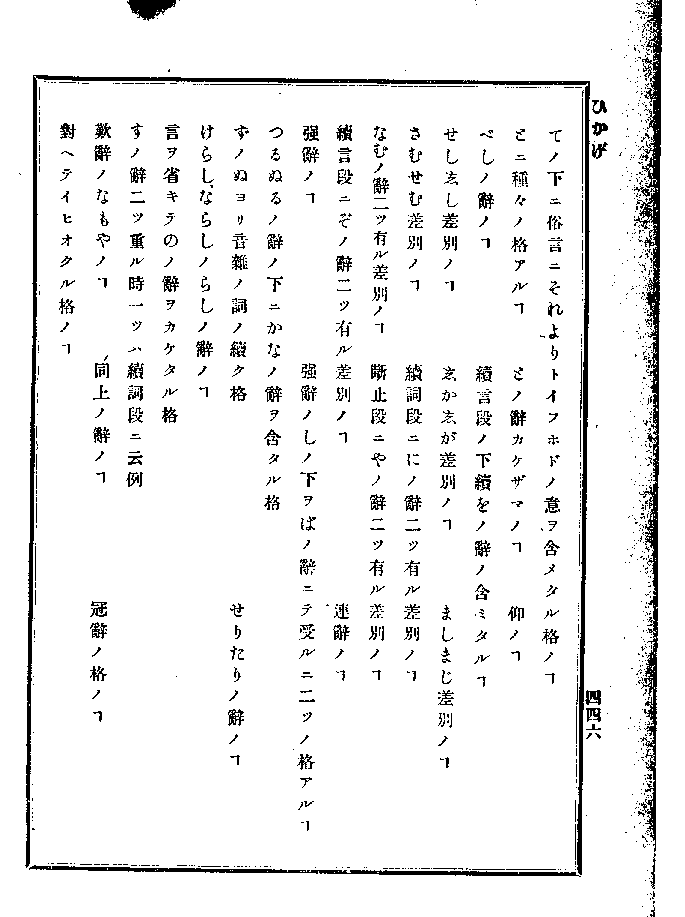 ひかげ
四四六
てノ下ニ俗言ニそれよりトイフホドノ意ヲ含メタル格ノヿ
とニ種々ノ格アルヿ　とノ辭カケザマノヿ　仰ノヿ
べしノ辭ノヿ　續言段ノ下續をノ辭ノ含ミタルヿ
せしゑし差別ノヿ　ゑかゑが差別ノヿ　ましまじ差別ノヿ
さむせむ差別ノヿ　續詞段ニにノ辭二ツ有ル差別ノヿ
なむノ辭二ツ有ル差別ノヿ　斷止段ニやノ辭二ツ有ル差別ノヿ
續言段ニぞノ辭二ツ有ル差別ノヿ　連辭ノヿ
强辭ノヿ　强辭ノしノ下ヲばノ辭ニテ受ルニ二ツノ格アルヿ
つるぬるノ辭ノ下ニかなノ辭ヲ含タル格
ずノぬヨリ音雜ノ詞ノ續ク格　せりたりノ辭ノヿ
けらし、ならしノらしノ辭ノヿ
言ヲ省キテのノ辭ヲカケタル格
すノ辭二ツ重ル時一ツハ續詞段ニ云例
歎辭ノなもやノヿ　同上ノ辭ノヿ　冠辭ノ格ノヿ
對ヘテイヒオタル格ノヿ